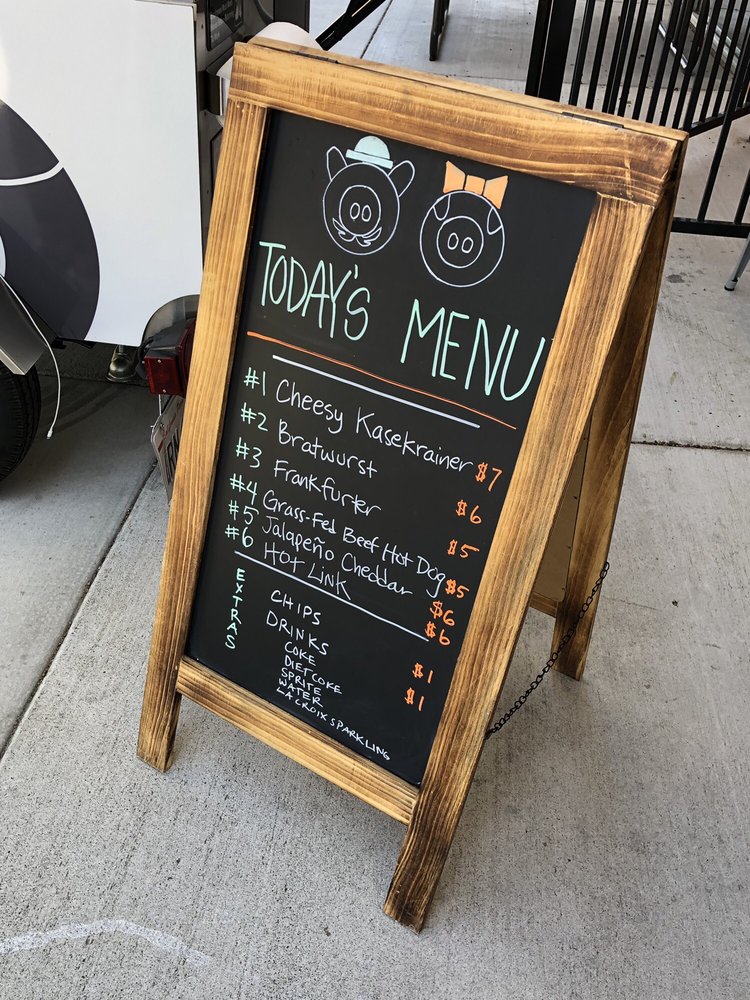 TODAY'S MENU
#1 Cheesy Kasekrainer $7
#2 Bratwurst $6
#3 Frankfurter $5
#4 Grass-Fed Beef Hot Dog $5
#5 Jalapeño Cheddar $6
#6 Hot Link $6
EXTRAS
CHIPS $1
DRINKS $1
COKE
DIET COKE
SPRITE
WATER
LA CROIX SPARKLING